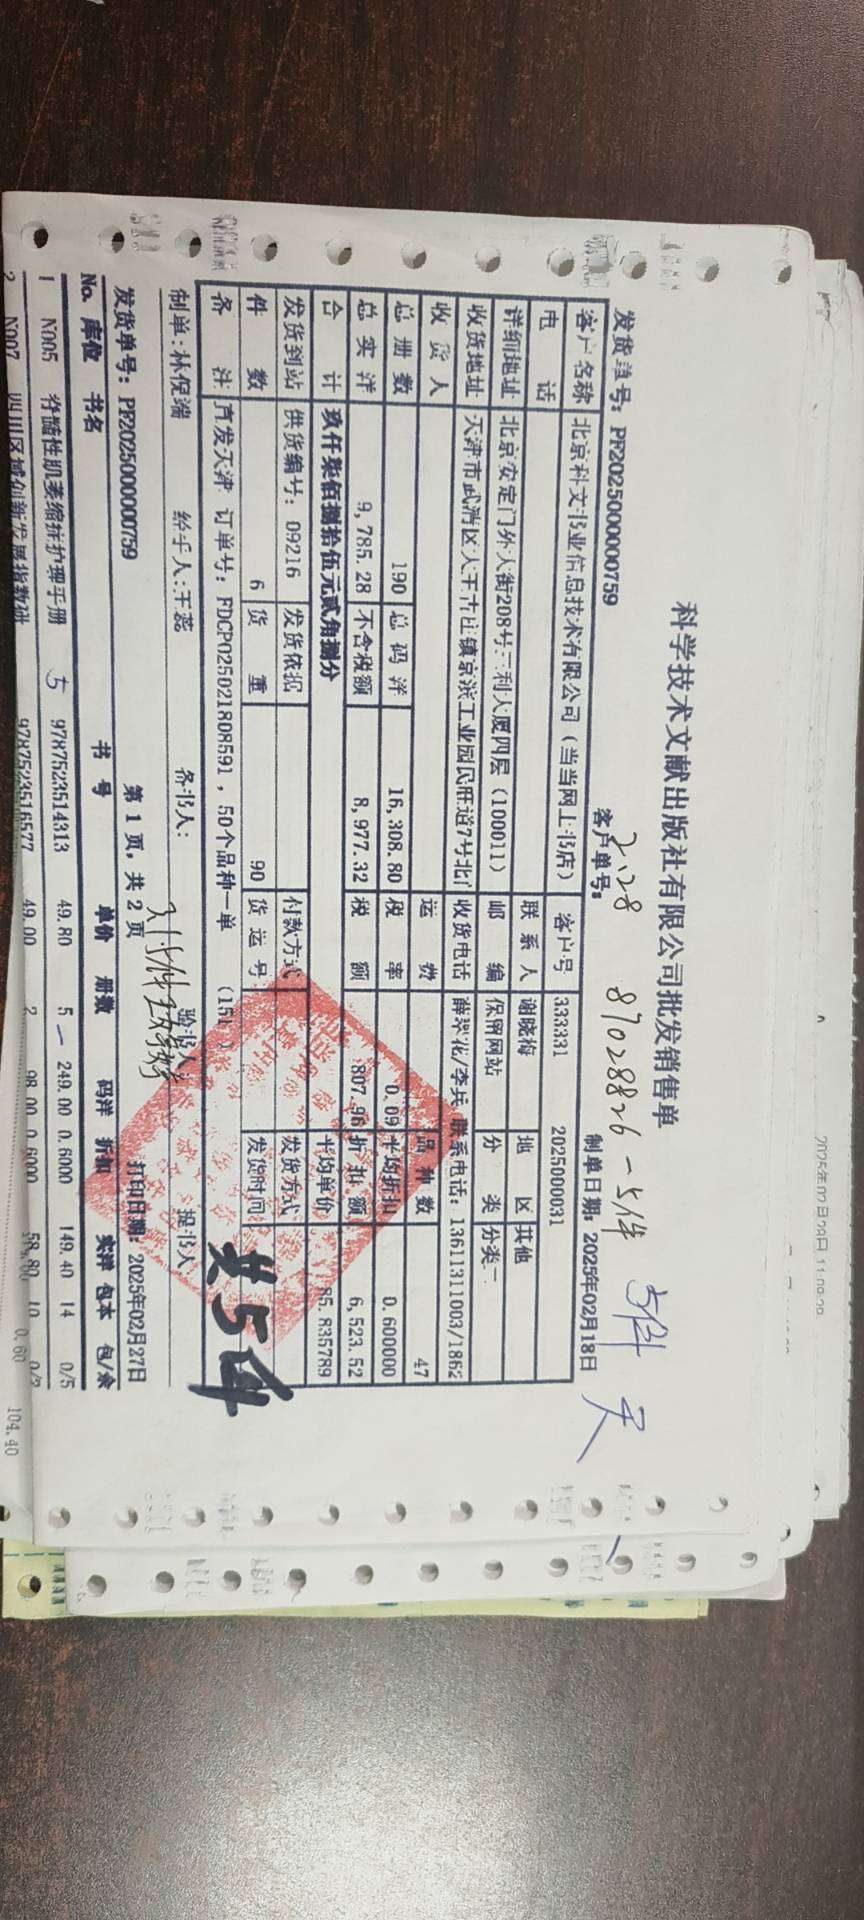 科学技术文献出版社有限公司批发销售单
2.28 87028826-5件 5件 天
发货单号：PF2025000000759 客户单号： 制单日期：2025年02月18日
客户名称 北京科文书业信息技术有限公司（当当网上书店） 客户号 333331 2025000031
电话 联系人 谢晓梅 地区 其他
详细地址 北京安定门外大街208号三利大厦四层（100011） 邮编 保留网站 分类 分类二
收货地址 天津市武清区大王古庄镇京滨工业园民旺道7号北门 收货电话 薛翠花/李兵 联系电话：13611311003/1862
收货人 运费 品种数 47
总册数 190 总码洋 16,308.80 税率 0.09 平均折扣 0.600000
总实洋 9,785.28 不含税额 8,977.32 税额 807.96 折扣额 6,523.52
合计 玖仟柒佰捌拾伍元贰角捌分 平均单价 85.835789
发货到站 供货编号：09216 发货依据 付款方式 发货方式
件数 6 货重 90 货运号 发货时间
备注 直发天津 订单号：FDCP025021808591，50个品种一单 （151）
共5件
制单：林俊端 经手人：王蕊 各书人： 验书人 提书人
发货单号：PF2025000000759 第1页，共2页 打印日期：2025年02月27日
No. 库位 书名 书号 单价 册数 码洋 折扣 实洋 包本 包/余
1 N005 脊髓性肌萎缩症护理手册 9787523514313 49.80 5 249.00 0.6000 149.40 14 0/5
2 N007 四川区域创新发展指数研 9787523516577 49.00 2 98.00 0.6000 58.80 10 0/2
0.60 104.40